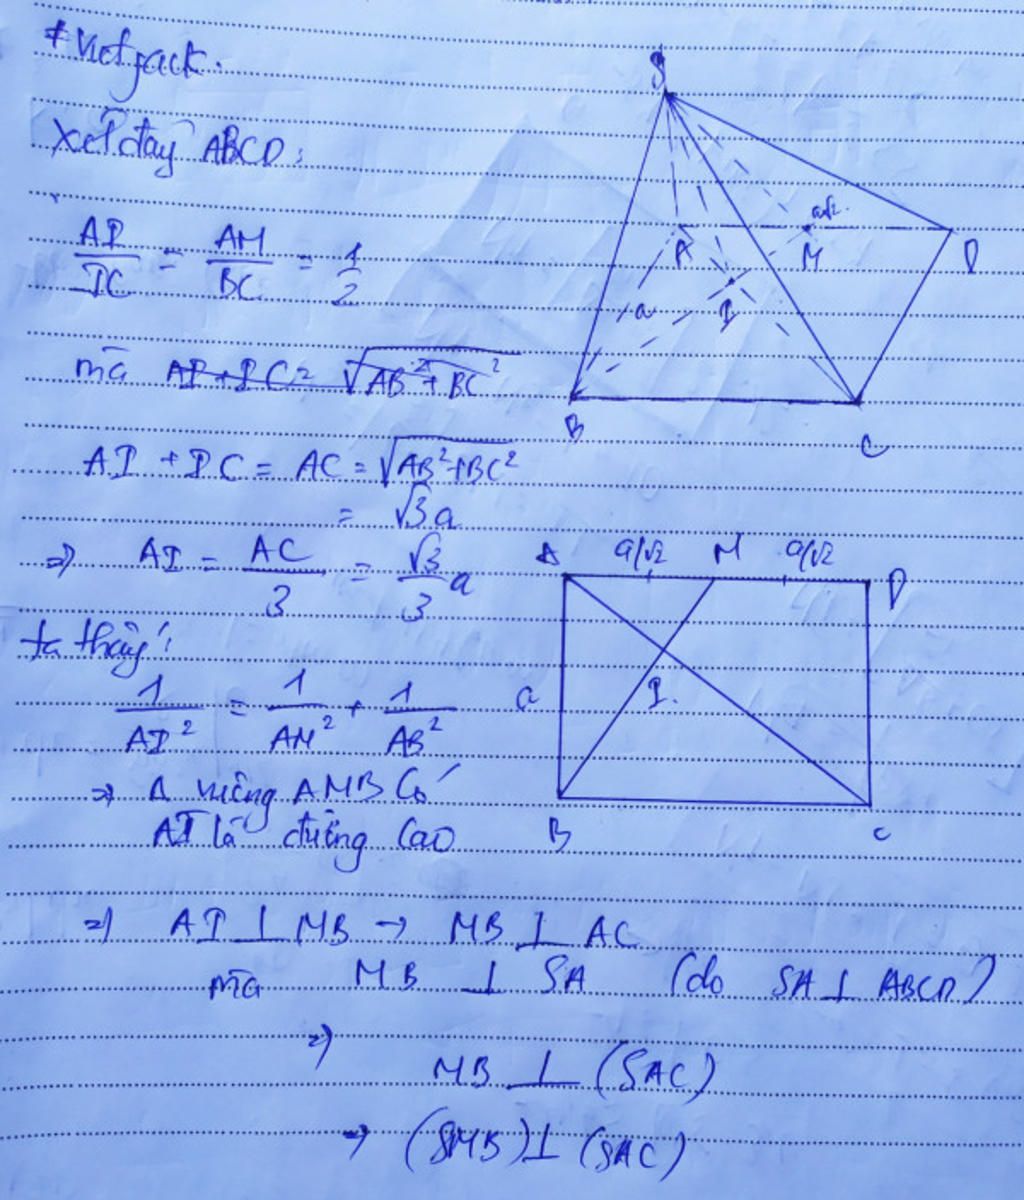 * Vietjack.
Xét đáy ABCD:
AI/IC = AM/BC = 1/2
mà AI + IC = √(AB² + BC²)
AI + IC = AC = √(AB² + BC²)
= √3a
=> AI = AC/3 = √3/3 a
ta thấy:
1/AI² = 1/AM² + 1/AB²
=> Δ vuông AMB Có
AI là đường Cao
=> AI ⊥ MB → MB ⊥ AC
mà MB ⊥ SA (do SA ⊥ ABCD)
=> MB ⊥ (SAC)
=> (SMB) ⊥ (SAC)
S
a√2
A M D
a I
B C
A a/√2 M a/√2 D
a I.
B C